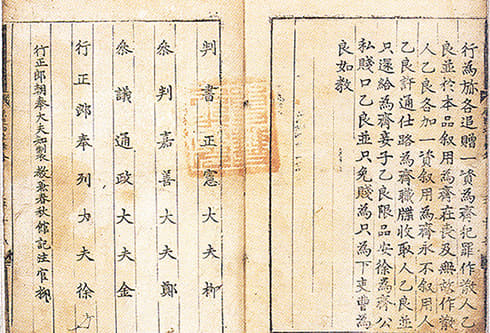 行為旀各追贈一資為齊犯罪作散人乙
良並於本品叙用為齊在喪及無故作散
人乙良各加一資叙用為齊永不叙用人
乙良許通仕路為齊職牒收取人乙良並
只還給為齊妾子乙良限品安徐為齊公
私賤口乙良並只免賤為只為下吏曹為
良如教
判書正憲大夫朴
叅判嘉善大夫鄭
叅議通政大夫金
行正郎奉列大夫徐
行正郎朝奉大夫知製 教兼春秋館記注官柳